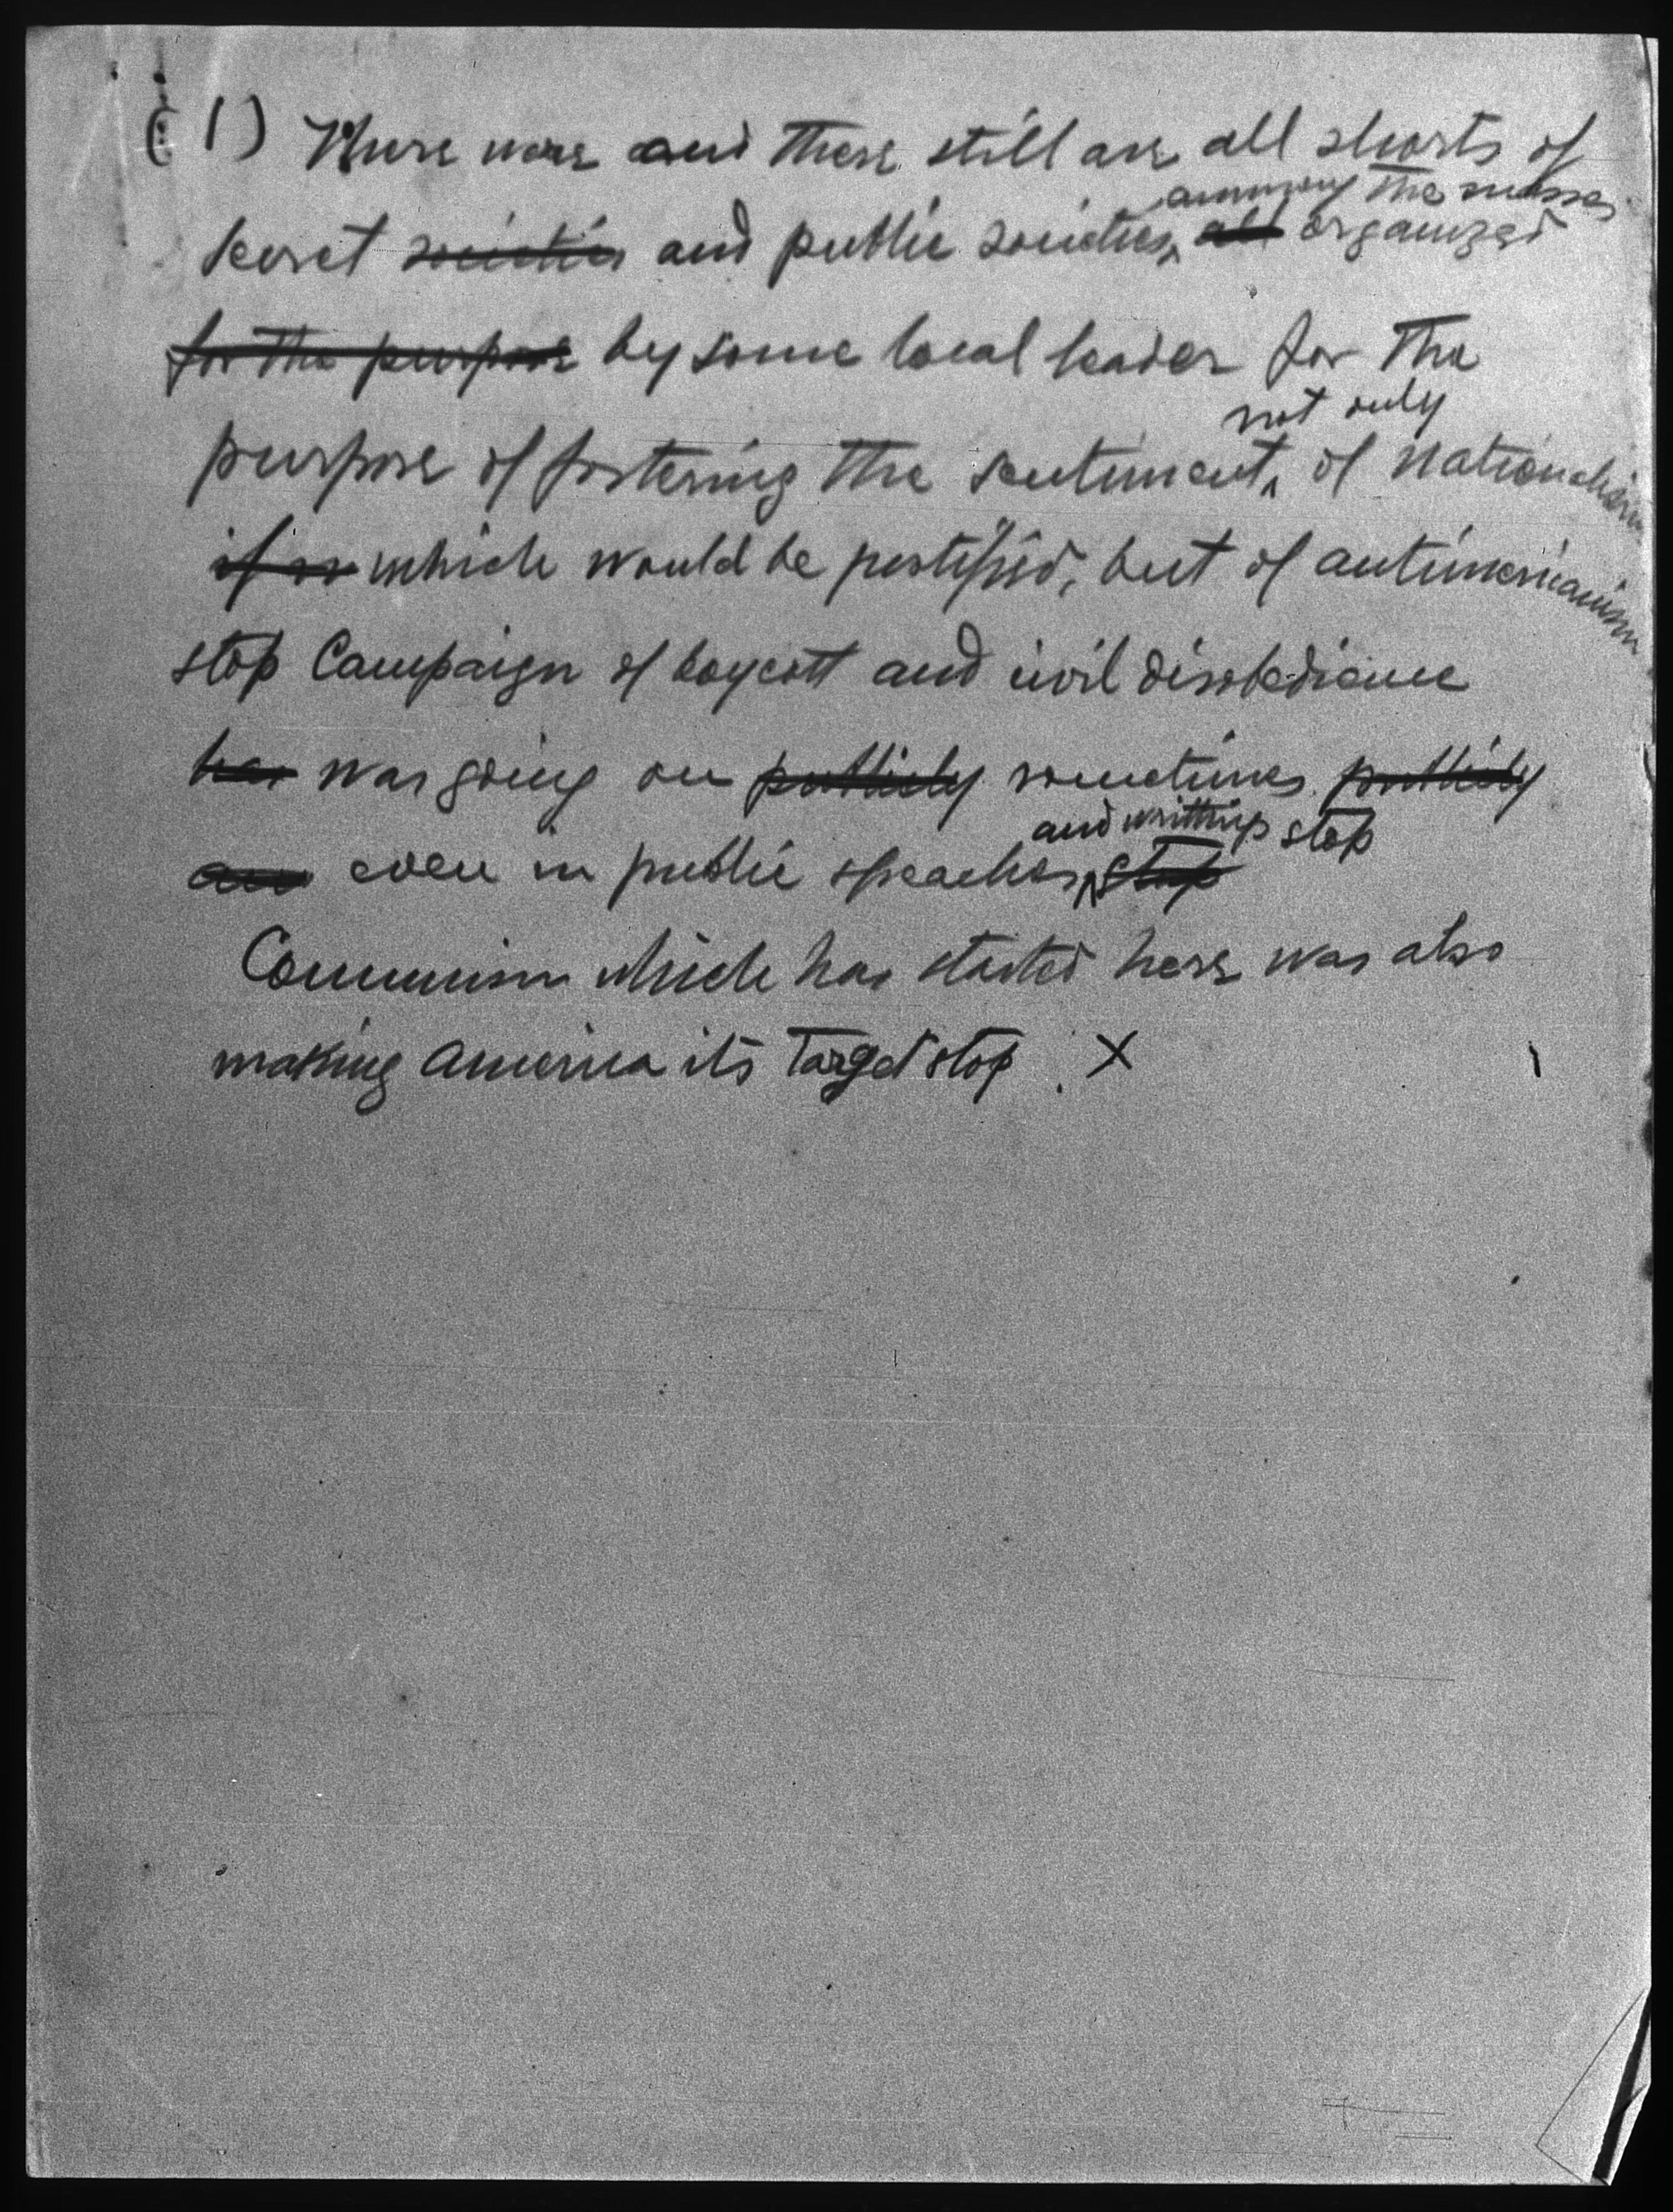 (1) There were and there still are all shorts of
ammong the masses
secret societies and public societies, all organized
for the purpose by some local leader for the
not only
purpose of fostering the sentiment, of nationalism
if is which would be justifyed, but of antimericanism
stop Campaign of boycott and civil disobedience
has was going on publicly sometimes publicly
and writtings stop
and even in public speaches, stop
Communism which has started here was also
making America its target stop . X